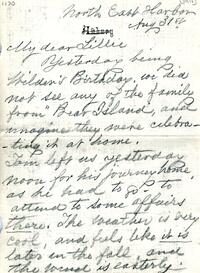 North East Harbor
Aug 31st
My dear Lillie
Yesterday being
Wilder's Birthday, we did
not see any of the family
from "Bear Island", and
imagine they were celebra-
ting it at home.
Tom left us yesterday
noon for his journey home
as he had to go to
attend to some affairs
there. The weather is very
cool, and feels like it is
later in the fall, and
the wind is easterly;